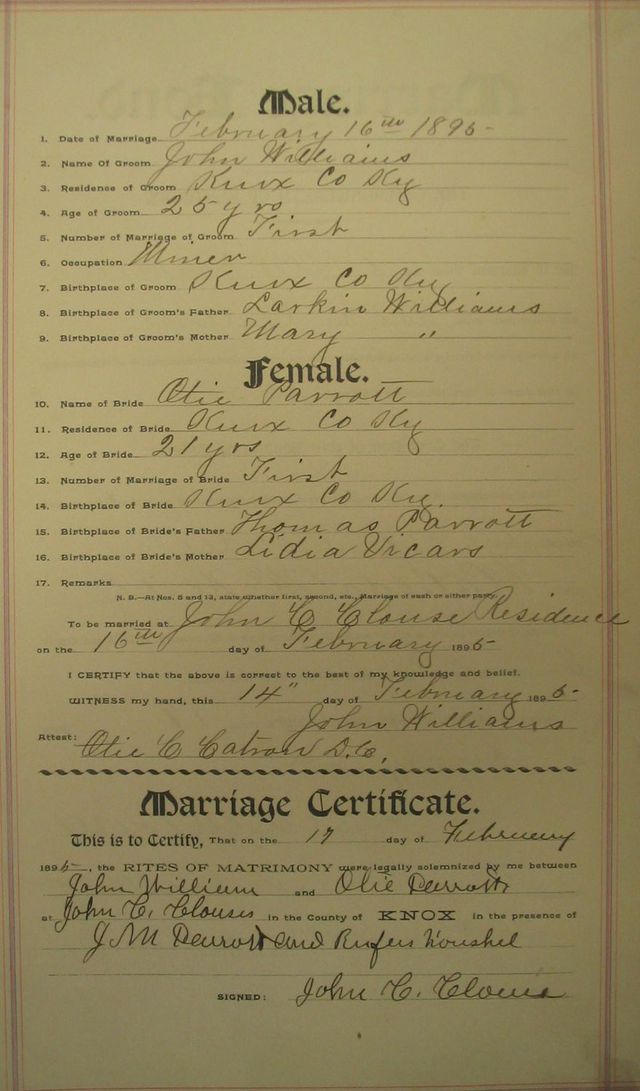 Male.
1. Date of Marriage February 16th 1895
2. Name Of Groom John Williams
3. Residence of Groom Knox Co Ky
4. Age of Groom 25 yrs
5. Number of Marriage of Groom First
6. Occupation Miner
7. Birthplace of Groom Knox Co Ky
8. Birthplace of Groom's Father Larkin Williams
9. Birthplace of Groom's Mother Mary "
Female.
10. Name of Bride Olie Parrott
11. Residence of Bride Knox Co Ky
12. Age of Bride 21 yrs
13. Number of Marriage of Bride First
14. Birthplace of Bride Knox Co Ky
15. Birthplace of Bride's Father Thomas Parrott
16. Birthplace of Bride's Mother Lidia Vicars
17. Remarks
N. B.—At Nos. 5 and 13, state whether first, second, etc., Marriage of each or either party.
To be married at John C Clouse Residence
on the 16th day of February 1895
I CERTIFY that the above is correct to the best of my knowledge and belief.
WITNESS my hand, this 14" day of February 1895
John Williams
Attest: Olie C Catron D.C.
Marriage Certificate.
This is to Certify, That on the 17 day of February
1895, the RITES OF MATRIMONY were legally solemnized by me between
John William and Olie
at John C. Clouses in the County of KNOX in the presence of
J M and Rufus
SIGNED: John C. Clouse